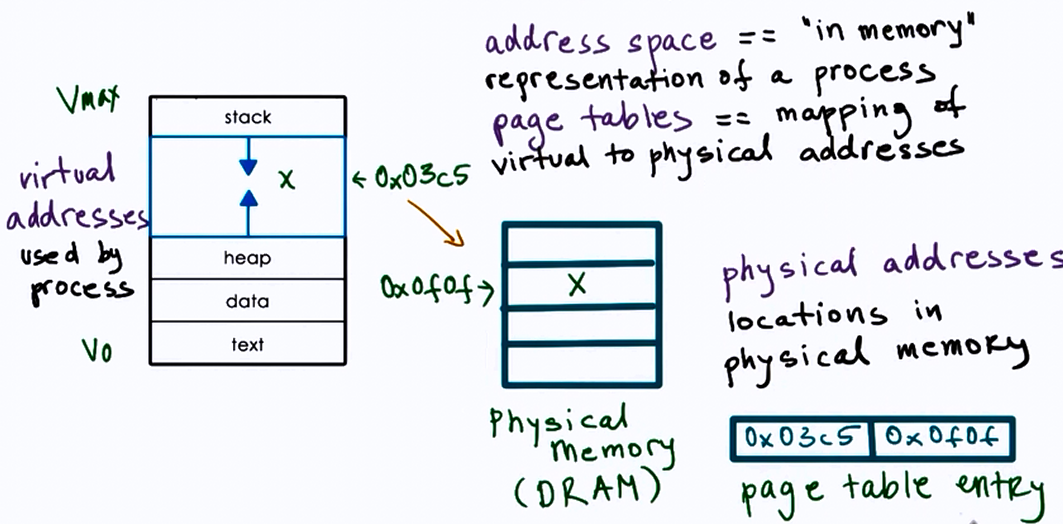 address space == "in memory"
representation of a process
page tables == mapping of
virtual to physical addresses
Vmax
virtual
addresses
used by
process
V0
stack
X
heap
data
text
← 0x03c5
0x0f0f →
X
Physical
Memory
(DRAM)
physical addresses
locations in
physical memory
0x03c5 0x0f0f
page table entry